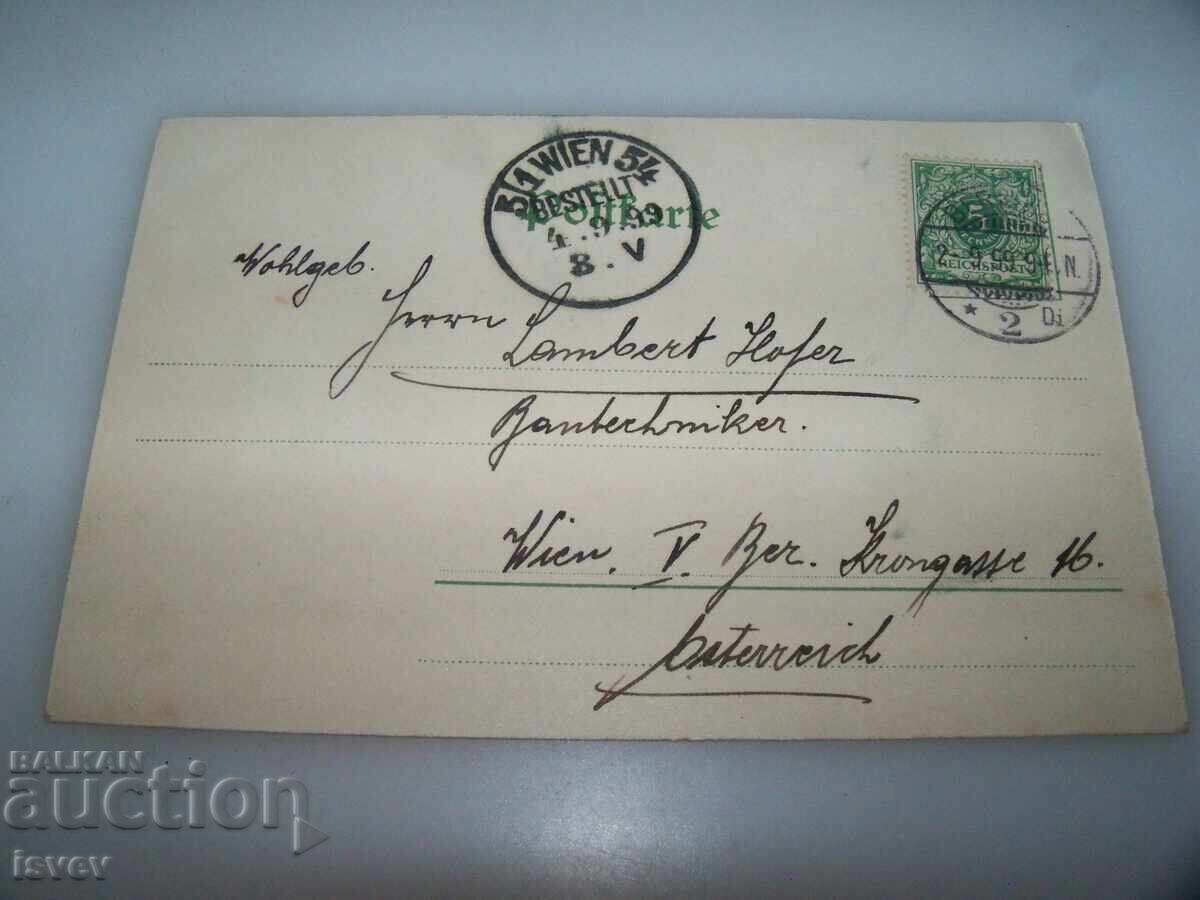 5/1 WIEN 54
BESTELLT
4.9.99
8.V
Postkarte
5
REICHSPOST
2.9.99.9-
N.
* 2 Di
Wohlgeb.
Herrn Lambert Hofer
Bautechniker.
Wien. V. Bez. Krongasse 16.
Österreich
BALKAN
auction
isvev